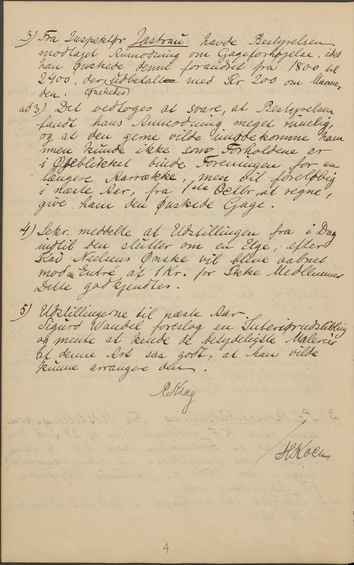 3) Fra Inspektør Jastrau havde Bestyrelsen
modtaget Anmodning om Gageforhøjelse, idet
han ønskede denne forandret fra 1800 til
2400, der udbetaltes med Kr 200 om Maane-
den.
ad 3) Det vedtoges at svare, at Bestyrelsen
fandt hans Anmodning meget rimelig,
og at den gerne vilde imødekomme ham
men kunde ikke som Forholdene er
i Øjeblikket binde Foreningen for en
længere Aarrække, men vil foreløbig
i næste Aar, fra 1ste Octbr. at regne,
give ham den ønskede Gage.
4) Sekr. meddelte at Udstillingen fra i Dag
indtil den slutter om en Uge, efter
Ejnar Nielsens Ønske vil blive aabnet
mod Entré af 1 Kr. for Ikke Medlemmer
Dette godkjendtes.
5) Udstillingerne til næste Aar.
Sigurd Wandel foreslog en Interiørudstilling
og mente at kende de betydeligste Malerier
af denne Art saa godt, at han vilde
kunne arrangere den.
HKoch
4